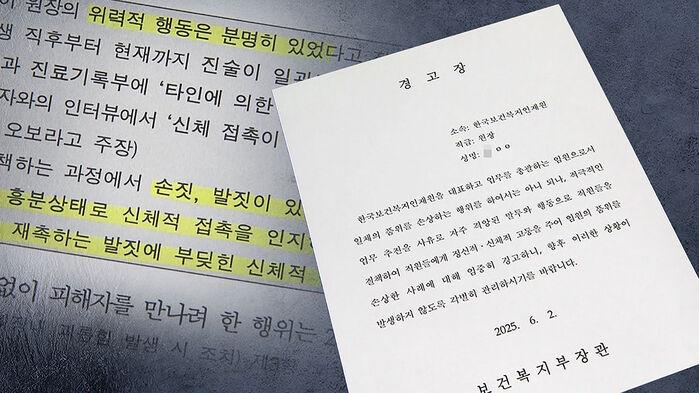 원장의 위력적 행동은 분명히 있었다고
생 직후부터 현재까지 진술이 일관
과 진료기록부에 '타인에 의한
자와의 인터뷰에서 '신체 접촉이
오보라고 주장)
책하는 과정에서 손짓, 발짓이 있
흥분상태로 신체적 접촉을 인지하
재촉하는 발짓에 부딪힌 신체적
없이 피해자를 만나려 한 행위는
괴롭힘 발생 시 조치)
경 고 장
소속: 한국보건복지인재원
직급: 원장
성명: ㅇㅇ
한국보건복지인재원을 대표하고 업무를 총괄하는 임원으로서
일체의 품위를 손상하는 행위를 하여서는 아니 되나, 적극적인
업무 추진을 사유로 자주 격앙된 말투와 행동으로 직원들을
질책하여 직원들에게 정신적·신체적 고통을 주어 임원의 품위를
손상한 사례에 대해 엄중히 경고하니, 향후 이러한 상황이
발생하지 않도록 각별히 관리하시기를 바랍니다.
2025. 6. 2.
보건복지부장관